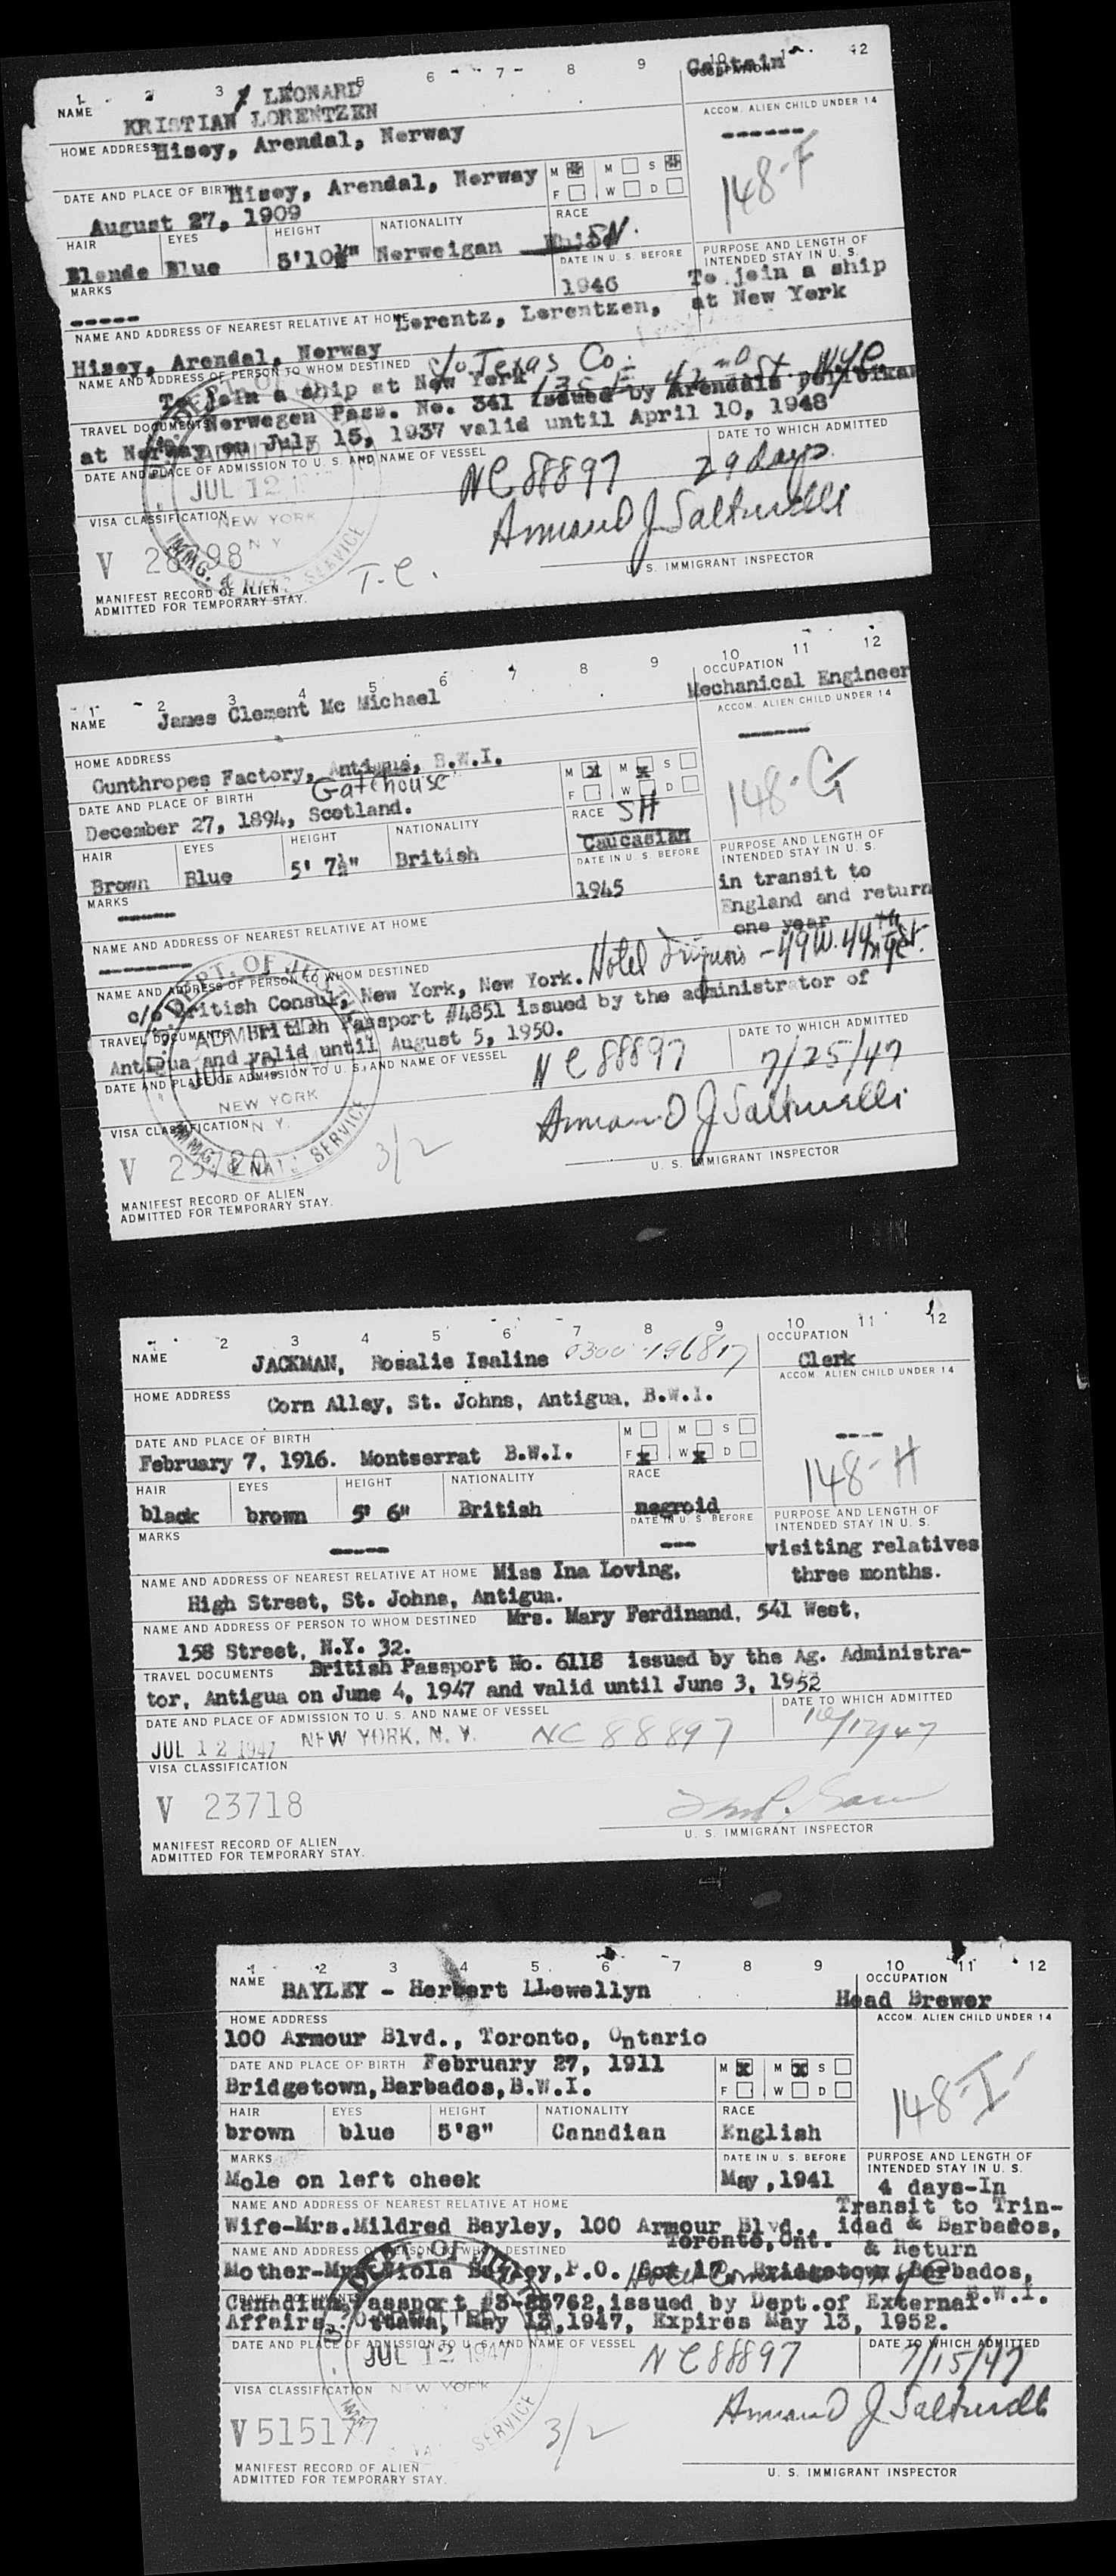 1 2 3 4 5 6 7 8 9 10 11 12
Captain
OCCUPATION
LEONARD
NAME KRISTIAN LORENTZEN
ACCOM. ALIEN CHILD UNDER 14
------
HOME ADDRESS Hisoy, Arendal, Norway
148-F
DATE AND PLACE OF BIRTH Hisoy, Arendal, Norway
M M S
F W D
August 27, 1909
HAIR EYES HEIGHT NATIONALITY RACE
Blonde Blue 5'10½" Norweigan White SN.
DATE IN U. S. BEFORE
1946
PURPOSE AND LENGTH OF
INTENDED STAY IN U. S.
To join a ship
at New York
MARKS
-----
NAME AND ADDRESS OF NEAREST RELATIVE AT HOME Lorentz, Lorentzen,
Hisoy, Arendal, Norway
NAME AND ADDRESS OF PERSON TO WHOM DESTINED c/o Texas Co.
To join a ship at New York 135 E. 42nd St. NYC
TRAVEL DOCUMENTS Norwegen Pass. No. 341 issued by Arendals
at Norway on July 15, 1937 valid until April 10, 1948
DATE AND PLACE OF ADMISSION TO U. S. AND NAME OF VESSEL
DATE TO WHICH ADMITTED
NC 88897 29 days
DEPT. OF
ADMITTED
JUL 12
NEW YORK
N Y
IMMG. & NATZ. SERVICE
VISA CLASSIFICATION
V
T-C.
U. S. IMMIGRANT INSPECTOR
MANIFEST RECORD OF ALIEN
ADMITTED FOR TEMPORARY STAY.
1 2 3 4 5 6 7 8 9 10 11 12
OCCUPATION
Mechanical Engineer
NAME James Clement Mc Michael
ACCOM. ALIEN CHILD UNDER 14
-------
HOME ADDRESS
Gunthropes Factory, Antigua, B.W.I.
148-G
DATE AND PLACE OF BIRTH Gatehouse
December 27, 1894, Scotland.
M M S
F W D
HAIR EYES HEIGHT NATIONALITY RACE SH
Brown Blue 5' 7½" British Caucasian
DATE IN U. S. BEFORE
1945
PURPOSE AND LENGTH OF
INTENDED STAY IN U. S.
in transit to
England and return
one year
MARKS
------
NAME AND ADDRESS OF NEAREST RELATIVE AT HOME
---------
NAME AND ADDRESS OF PERSON TO WHOM DESTINED
c/o British Consul, New York, New York. Hotel - 49 W. 44th St.
TRAVEL DOCUMENTS British Passport #4851 issued by the administrator of
Antigua and valid until August 5, 1950.
DATE AND PLACE OF ADMISSION TO U. S. AND NAME OF VESSEL
DATE TO WHICH ADMITTED
NC 88897 7/25/47
DEPT. OF JUSTICE
ADMITTED
JUL 12
NEW YORK
N. Y.
IMMG. & NATZ. SERVICE
VISA CLASSIFICATION
V
3/2
U. S. IMMIGRANT INSPECTOR
MANIFEST RECORD OF ALIEN
ADMITTED FOR TEMPORARY STAY.
1 2 3 4 5 6 7 8 9 10 11 12
OCCUPATION
Clerk
NAME JACKMAN, Rosalie Isaline 0300-196817
ACCOM. ALIEN CHILD UNDER 14
----
HOME ADDRESS Corn Alley, St. Johns, Antigua, B.W.I.
148-H
DATE AND PLACE OF BIRTH
February 7, 1916. Montserrat B.W.I.
M M S
F W D
HAIR EYES HEIGHT NATIONALITY RACE
black brown 5' 6" British negroid
DATE IN U. S. BEFORE
---
PURPOSE AND LENGTH OF
INTENDED STAY IN U. S.
visiting relatives
three months.
MARKS
-----
NAME AND ADDRESS OF NEAREST RELATIVE AT HOME Miss Ina Loving,
High Street, St. Johns, Antigua.
NAME AND ADDRESS OF PERSON TO WHOM DESTINED Mrs. Mary Ferdinand, 541 West,
158 Street, N.Y. 32.
TRAVEL DOCUMENTS British Passport No. 6118 issued by the Ag. Administra-
tor, Antigua on June 4, 1947 and valid until June 3, 1952
DATE AND PLACE OF ADMISSION TO U. S. AND NAME OF VESSEL
DATE TO WHICH ADMITTED
JUL 12 1947 NEW YORK, N. Y. NC 88897
VISA CLASSIFICATION
V 23718
U. S. IMMIGRANT INSPECTOR
MANIFEST RECORD OF ALIEN
ADMITTED FOR TEMPORARY STAY.
1 2 3 4 5 6 7 8 9 10 11 12
OCCUPATION
Head Brewer
NAME BAYLEY - Herbert Llewellyn
ACCOM. ALIEN CHILD UNDER 14
HOME ADDRESS
100 Armour Blvd., Toronto, Ontario
148-I
DATE AND PLACE OF BIRTH February 27, 1911
Bridgetown, Barbados, B.W.I.
M M S
F W D
HAIR EYES HEIGHT NATIONALITY RACE
brown blue 5'8" Canadian English
MARKS
Mole on left cheek
DATE IN U. S. BEFORE
May, 1941
PURPOSE AND LENGTH OF
INTENDED STAY IN U. S.
4 days-In
Transit to Trin-
idad & Barbados,
& Return
NAME AND ADDRESS OF NEAREST RELATIVE AT HOME
Wife-Mrs. Mildred Bayley, 100 Armour Blvd.
Toronto, Ont.
NAME AND ADDRESS OF PERSON TO WHOM DESTINED
Mother-Mrs. Viola Bayley, P.O. Box 17, Bridgetown, Barbados,
B.W.I.
TRAVEL DOCUMENTS
Canadian Passport issued by Dept. of External
Affairs, Ottawa, May 13, 1947, Expires May 13, 1952.
DATE AND PLACE OF ADMISSION TO U. S. AND NAME OF VESSEL
DATE TO WHICH ADMITTED
NC 88897 7/15/47
DEPT. OF JUSTICE
JUL 12 1947
NEW YORK
SERVICE
VISA CLASSIFICATION
V 515177
3/2
U. S. IMMIGRANT INSPECTOR
MANIFEST RECORD OF ALIEN
ADMITTED FOR TEMPORARY STAY.